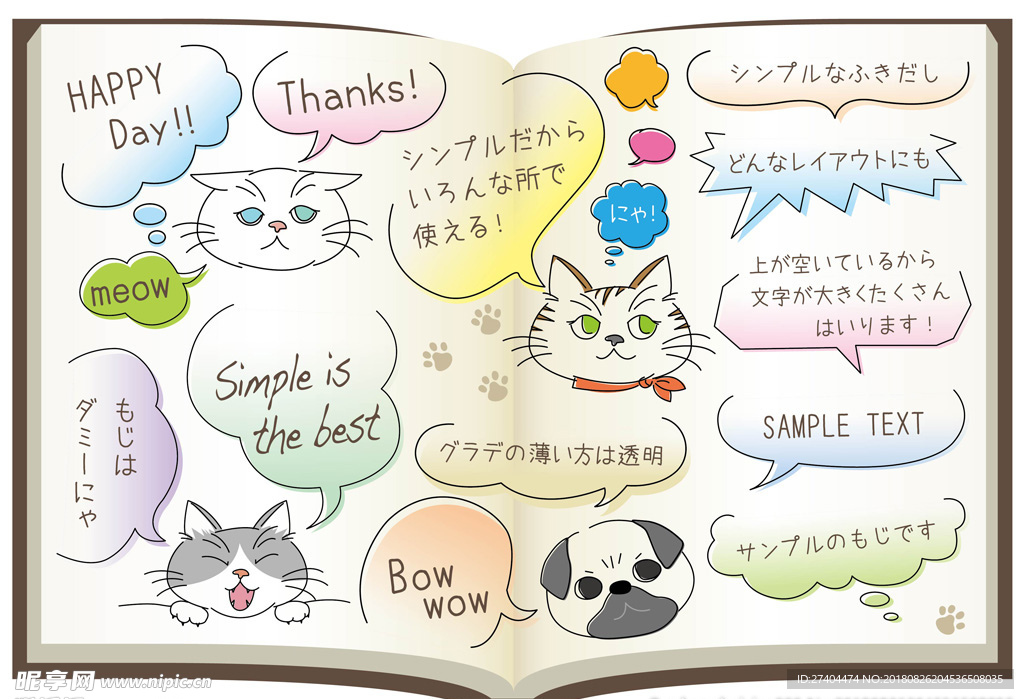 HAPPY
Day!!
Thanks!
シンプルだから
いろんな所で
使える!
にゃ!
シンプルなふきだし
どんなレイアウトにも
上が空いているから
文字が大きくたくさん
はいります!
meow
Simple is
the best
もじは
ダミーにゃ
グラデの薄い方は透明
SAMPLE TEXT
Bow
wow
サンプルのもじです
昵享网 www.nipic.cn
ID:27404474 NO:20180826204536508035